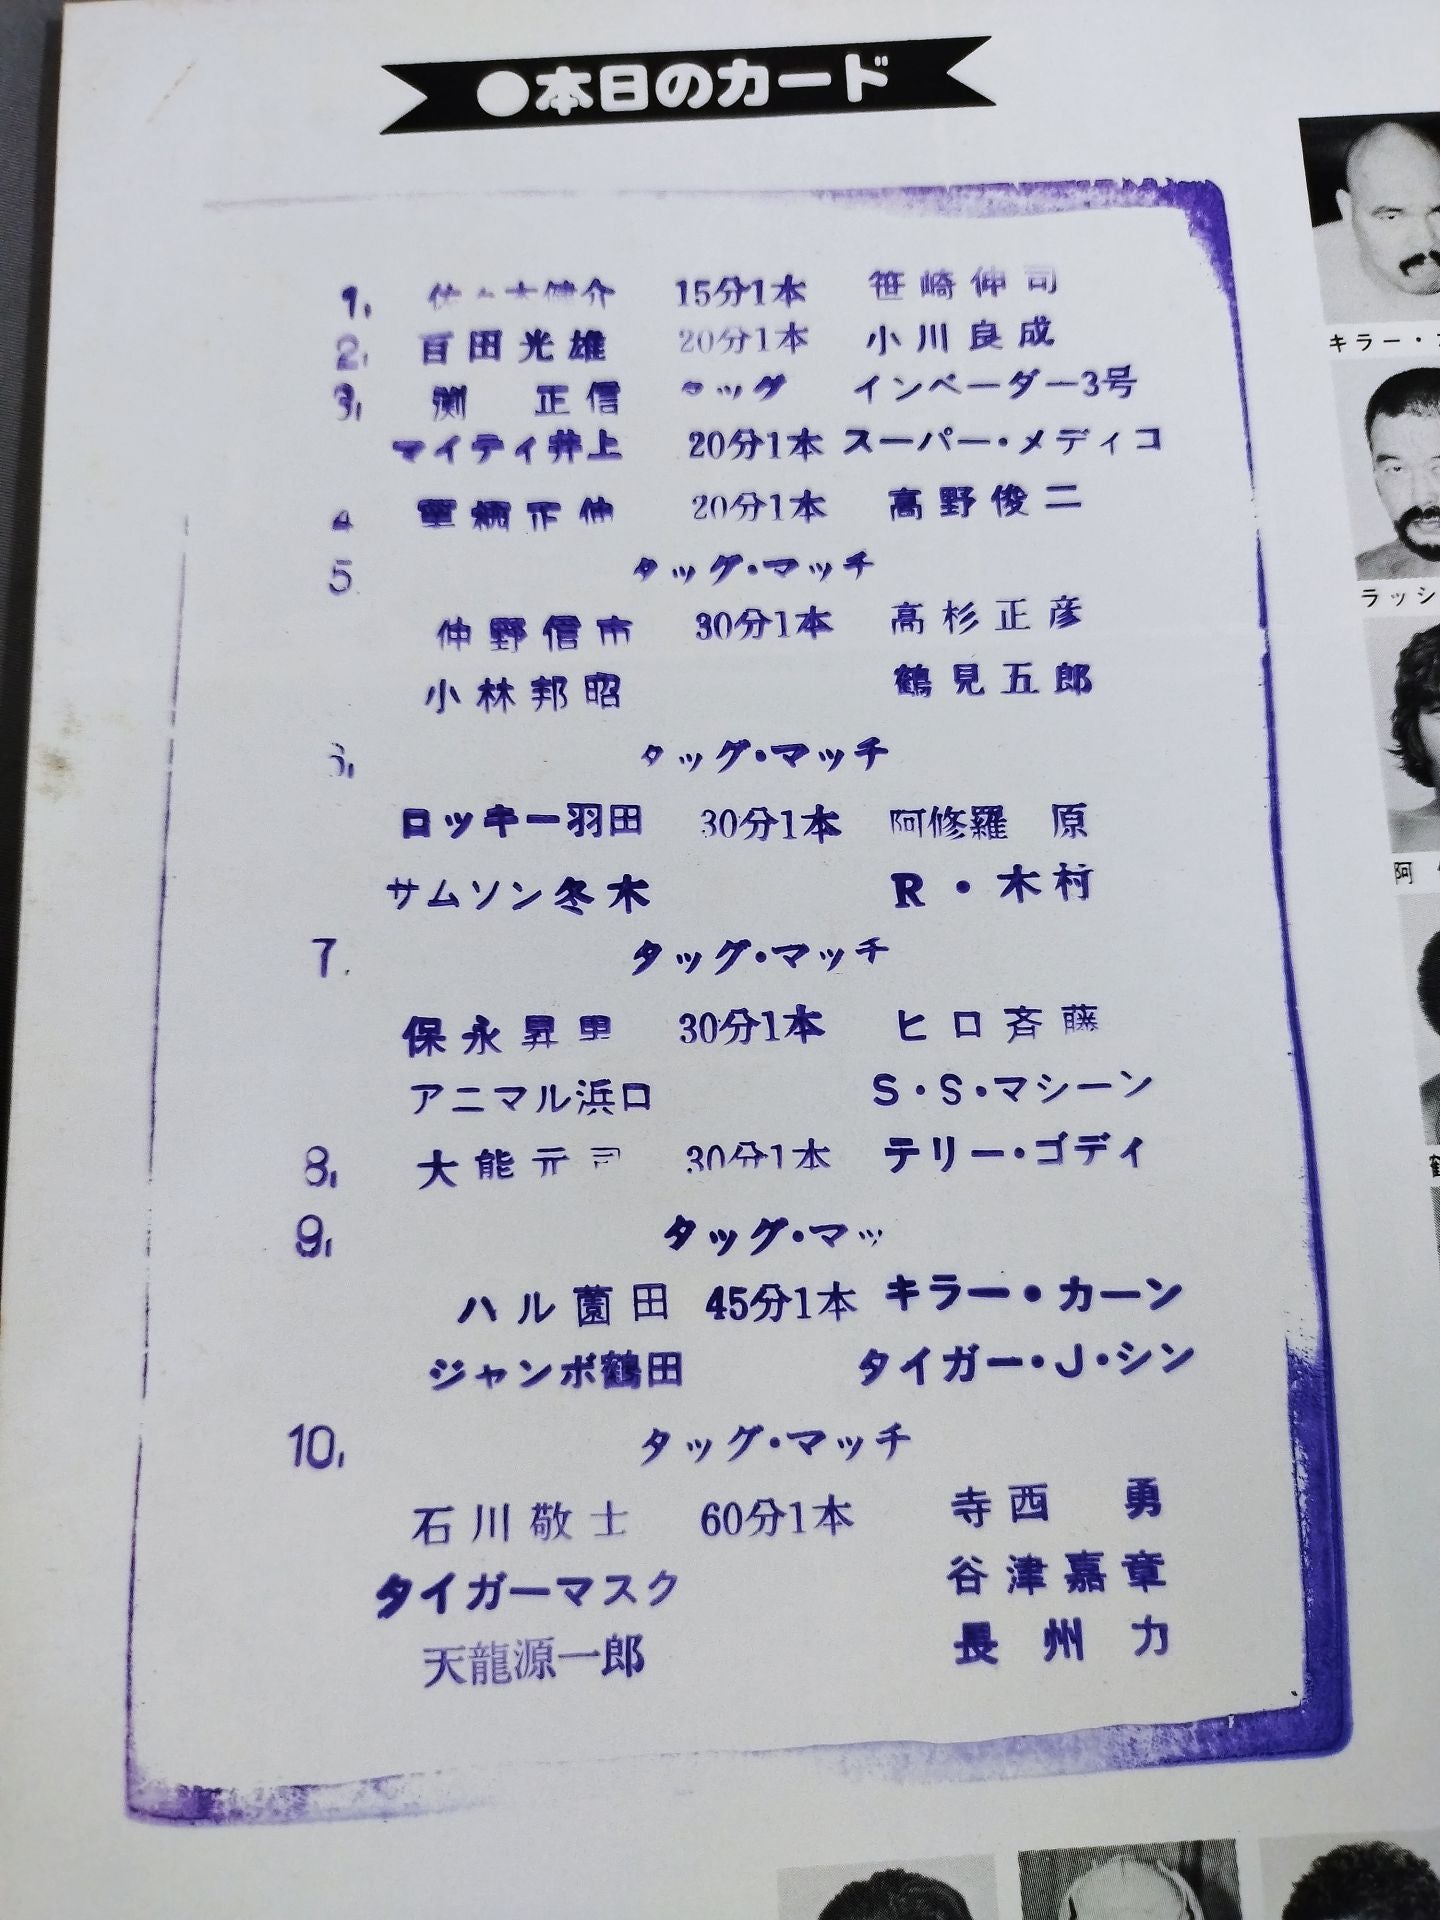 ●本日のカード
1, 佐々木健介 15分1本 笹崎伸司
2, 百田光雄 20分1本 小川良成
3, 渕 正信 タッグ インベーダー3号
マイティ井上 20分1本 スーパー・メディコ
4 重柄正伸 20分1本 高野俊二
5. タッグ・マッチ
仲野信市 30分1本 高杉正彦
小林邦昭 鶴見五郎
6, タッグ・マッチ
ロッキー羽田 30分1本 阿修羅 原
サムソン冬木 R・木村
7. タッグ・マッチ
保永昇男 30分1本 ヒロ斉藤
アニマル浜口 S・S・マシーン
8, 大熊元司 30分1本 テリー・ゴディ
9, タッグ・マッ
ハル薗田 45分1本 キラー・カーン
ジャンボ鶴田 タイガー・J・シン
10, タッグ・マッチ
石川敬士 60分1本 寺西 勇
タイガーマスク 谷津嘉章
天龍源一郎 長州力
キラー・
ラッシ
阿
鶴